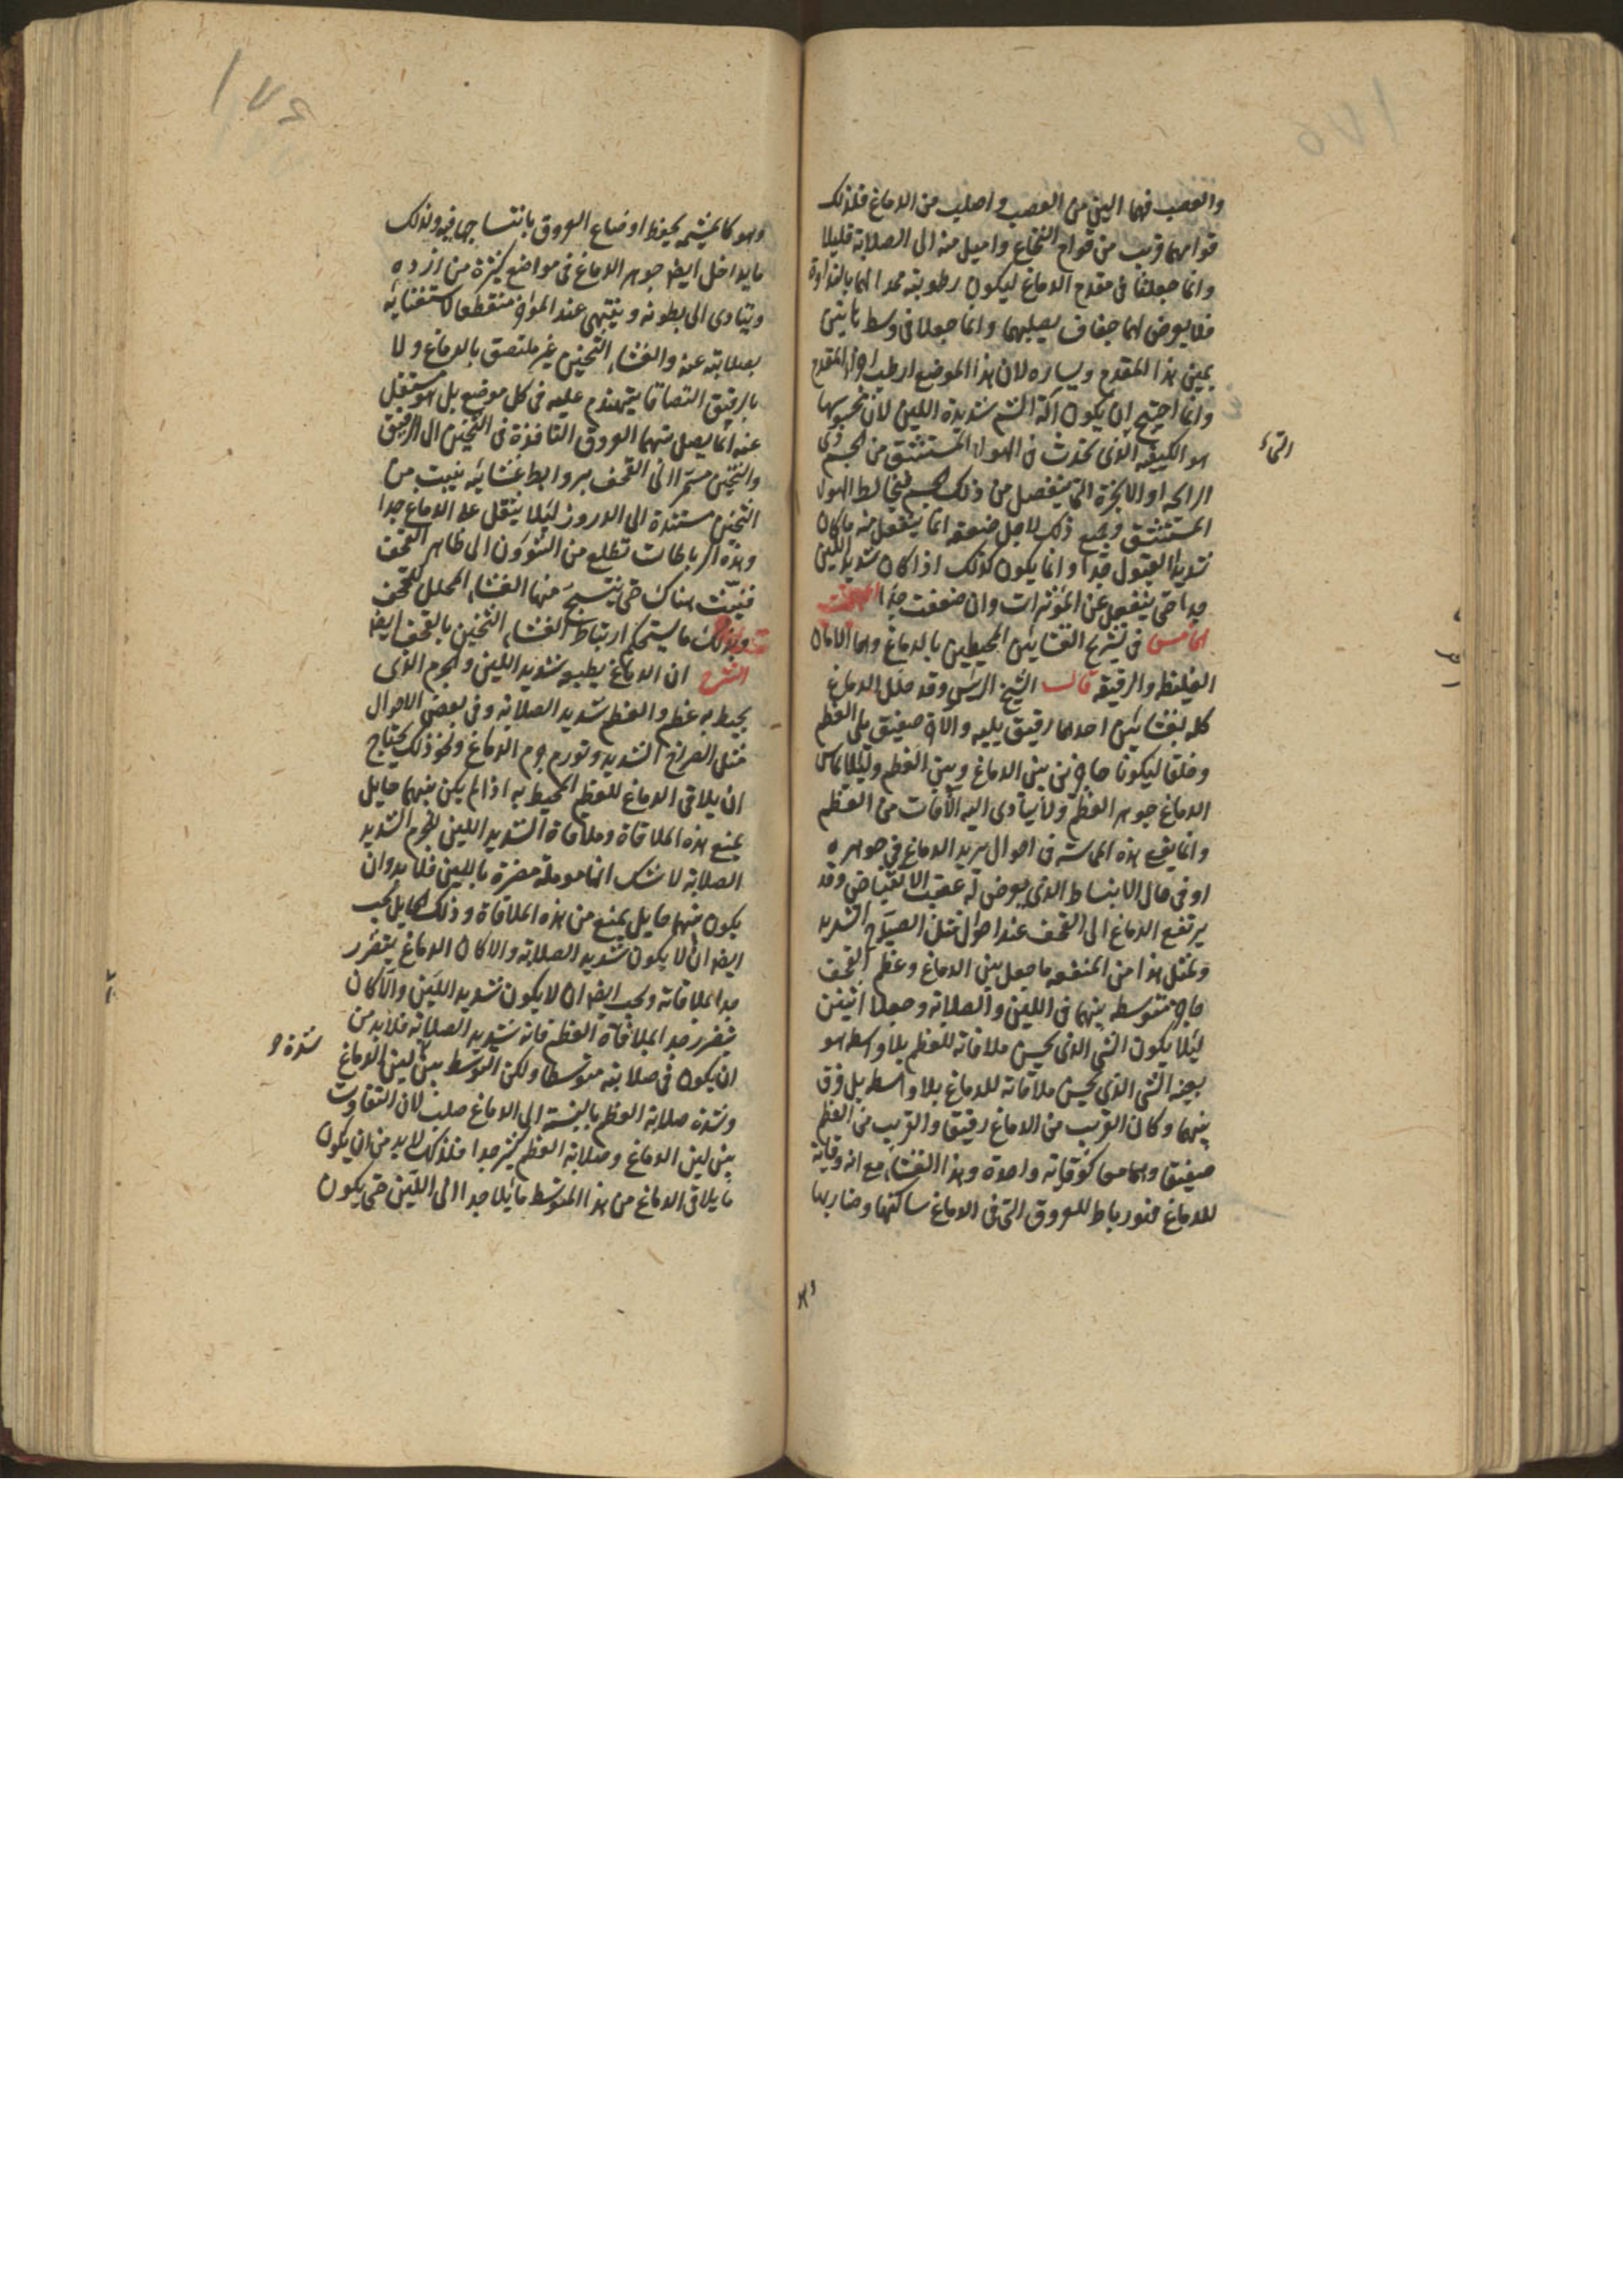 ١٧٥
والعصب فهما الين من العصب واصلب من الدماغ فلذلك
قوامهما قريب من قوام النخاع واميل منه الى الصلابة قليلا
وانما جعلتا فى مقدم الدماغ ليكون رطوبته ممدا لهما بالنداوة
فلا يعرض لهما جفاف يصلبهما وانما جعلا فى وسط ما بين
يمين هذا المقدم ويساره لان هذا الموضع ارطب اجزا المقدم
وانما احتيج ان يكون آلة الشم شديدة اللين لان محسوسها
هو الكيفيه الذى تحدث فى الهواء المستنشق من الجسم ذى
التى
الرائحه او الابخرة التى ينفصل من ذلك الجسم فيخالط الهوا
المستنشق وجميع ذلك لاجل ضعفه انما ينفعل منه ما كان
شديد القبول جدا وانما يكون كذلك اذا كان شديد اللين
جدا حتى ينفعل عن المؤثرات وان ضعفت جدا المبحث
الخامس فى تشريح الغشائين المحيطين بالدماغ وهما الامان
الغليظه والرقيقه قال الشيخ الرئيس وقد جلل الدماغ
كله بغشائين احدهما رقيق يليه والآخر صفيق يلى العظم
وخلقا ليكونا حاجزين بين الدماغ وبين العظم ولئلا يماس
الدماغ جوهر العظم ولا يتادى اليه الآفات من العظم
وانما يقع هذه المماسّة فى احوال تزيد الدماغ فى جوهره
او فى حال الانبساط الذى يعرض له عقيب الانقباض وقد
يرتفع الدماغ الى القحف عند احوال مثل الصياح الشديد
ولمثل هذا من المنفعه ما جعل بين الدماغ وعظم القحف
حاجز متوسطه بينهما فى اللين والصلابة وجعلا اثنين
ليلا يكون الشى الذى يحسن ملاقاته للعظم بلا واسطه هو
بعينه الشى الذى يحسن ملاقاته للدماغ بلا واسطه بل فرق
بينهما وكان القريب من الدماغ رقيقا والقريب من العظم
صفيقا وهما معا كوقاية واحدة وهذا الغشاء مع انه وقاية
للدماغ فهو رباط للعروق التى فى الدماغ ساكنها وضاربها
وهو
١٧٦
وهو كالمشيمه يحفظ اوضاع العروق بانتساجها فيه ولذلك
ما يداخل ايضا جوهر الدماغ فى مواضع كثيرة من ازرده
ويتادى الى بطونه وينتهى عند المؤخر منقطعا لاستغنائه
بصلابته عنه والغشاء الثخين غير ملتصق بالدماغ ولا
بالرقيق التصاقا يتهندم عليه فى كل موضع بل هو مستقل
عنه انما يصل بينهما العروق النافذة فى الثخين الى الرقيق
والثخين مسمر الى القحف بروابط غشائيه ينبت من
الثخين مستندة الى الدروز ليلا يثقل على الدماغ جدا
وهذه الرباطات تطلع من الشؤون الى ظاهر القحف
فينبت هناك حتى ينتسج منها الغشاء المجلل للقحف
وبذلك ما يستحكم ارتباط الغشاء الثخين بالقحف ايضا
الشرح ان الدماغ بطبعه شديد اللين والجرم الذى
يحيط به عظم والعظم شديد الصلابه وفى بعض الاحوال
مثل الصراخ الشديد وتورم جرم الدماغ ونحو ذلك يحتاج
ان يلاقى الدماغ للعظم المحيط به اذا لم يكن بينهما حايل
يمنع هذه الملاقاة وملاقاة الشديد اللين للجرم الشديد
الصلابة لا شك انها مؤلمة مضرة باللين فلا بد وان
يكون بينهما حايل يمنع من هذه الملاقاة وذلك الحايل يجب
ايضا ان لا يكون شديد الصلابه والا كان الدماغ يتضرر
جدا بملاقاته ويجب ايضا ان لا يكون شديد اللين والا كان
يتضرر جدا بملاقاة العظم فانه شديد الصلابه فلا بد من
ان يكون فى صلابته متوسطا ولكن التوسط بين لين الدماغ
شدة و
وشدة صلابة العظم بالنسبة الى الدماغ صلب لان التفاوت
بين لين الدماغ وصلابة العظم كثير جدا فلذلك لا بد من ان يكون
ما يلاقى الدماغ من هذا المتوسط مائلا جدا الى اللين حتى يكون